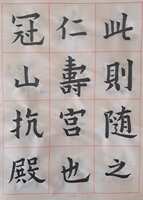 此則随之
仁壽宮也
冠山抗殿